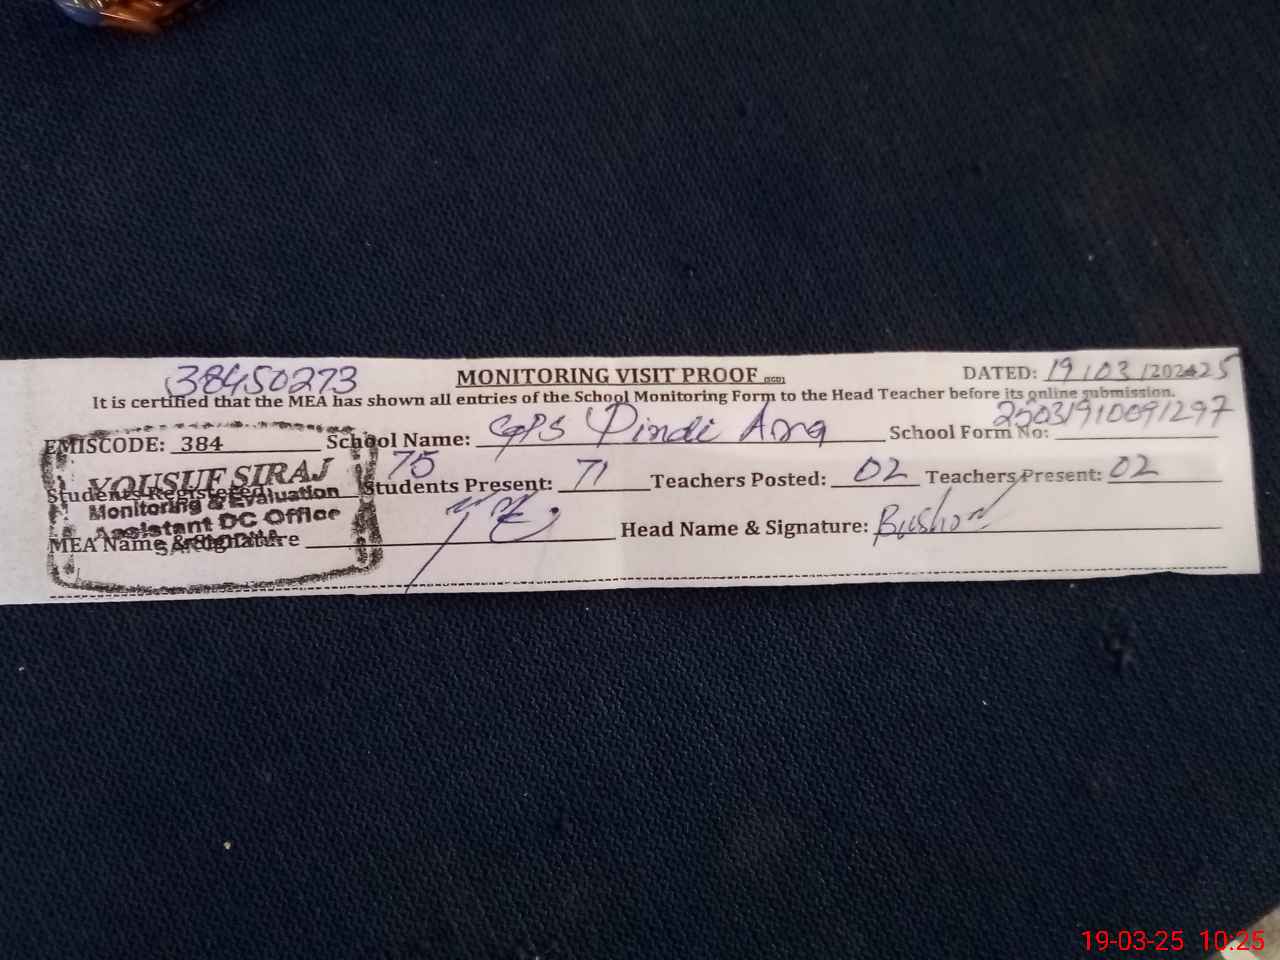 38450273 MONITORING VISIT PROOF (SGD) DATED: 19/03/202425
It is certified that the MEA has shown all entries of the School Monitoring Form to the Head Teacher before its online submission.
EMISCODE: 384 School Name: GPS Pindi Ama School Form No: 25031910091297
Students Registered: 75 Students Present: 71 Teachers Posted: 02 Teachers Present: 02
YOUSUF SIRAJ
Monitoring & Evaluation
Assistant DC Office
SARGODHA
MEA Name & Signature Head Name & Signature: Bushra
19-03-25 10:25